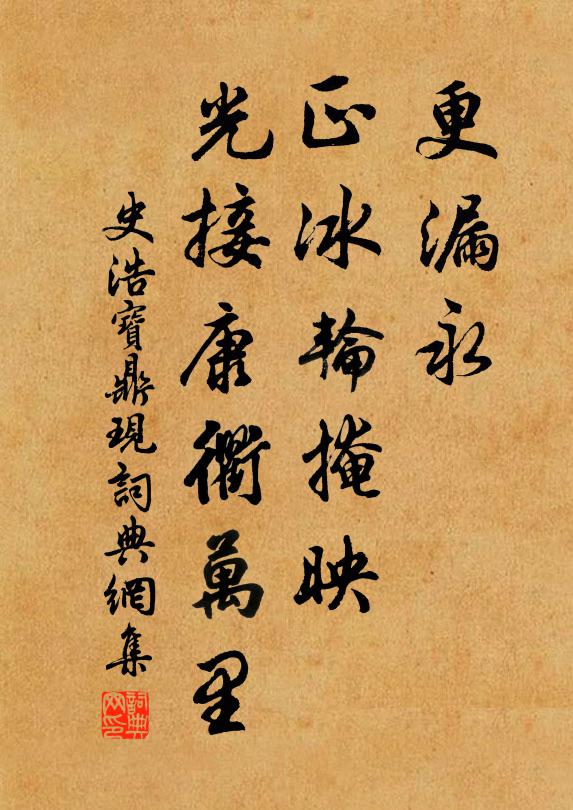 更漏永
正冰輪掩映
光接康衢萬里
史浩寶鼎現詞典網集
詞典网印